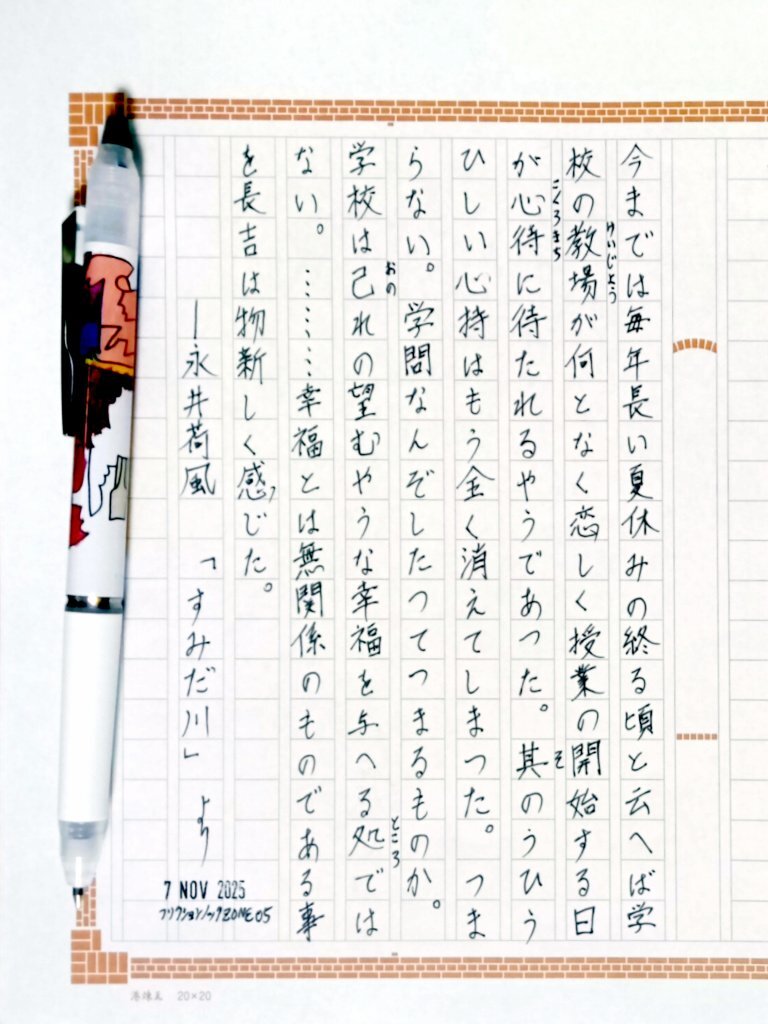 今までは毎年長い夏休みの終る頃と云へば学
校の教場が何となく恋しく授業の開始する日
けいじよう
が心待に待たれるやうであつた。其のうひう
こゝろまち
そ
ひしい心持はもう全く消えてしまつた。つま
らない。学問なんぞしたつてつまるものか。
学校は己れの望むやうな幸福を与へる処では
おの
ところ
ない。………幸福とは無関係のものである事
を長吉は物新しく感じた。
―永井荷風 「すみだ川」より
7 NOV 2025
フリクションノックZONE05
20×20